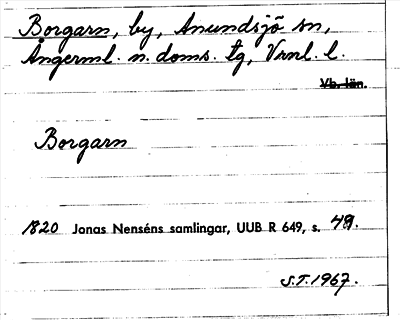 Borgarn, by, Anundsjö sn,
Ångerml. n. doms. tg, Vrnl. l.
Vb. län.
Borgarn
1820 Jonas Nenséns samlingar, UUB R 649, s. 49.
S.T. 1967.